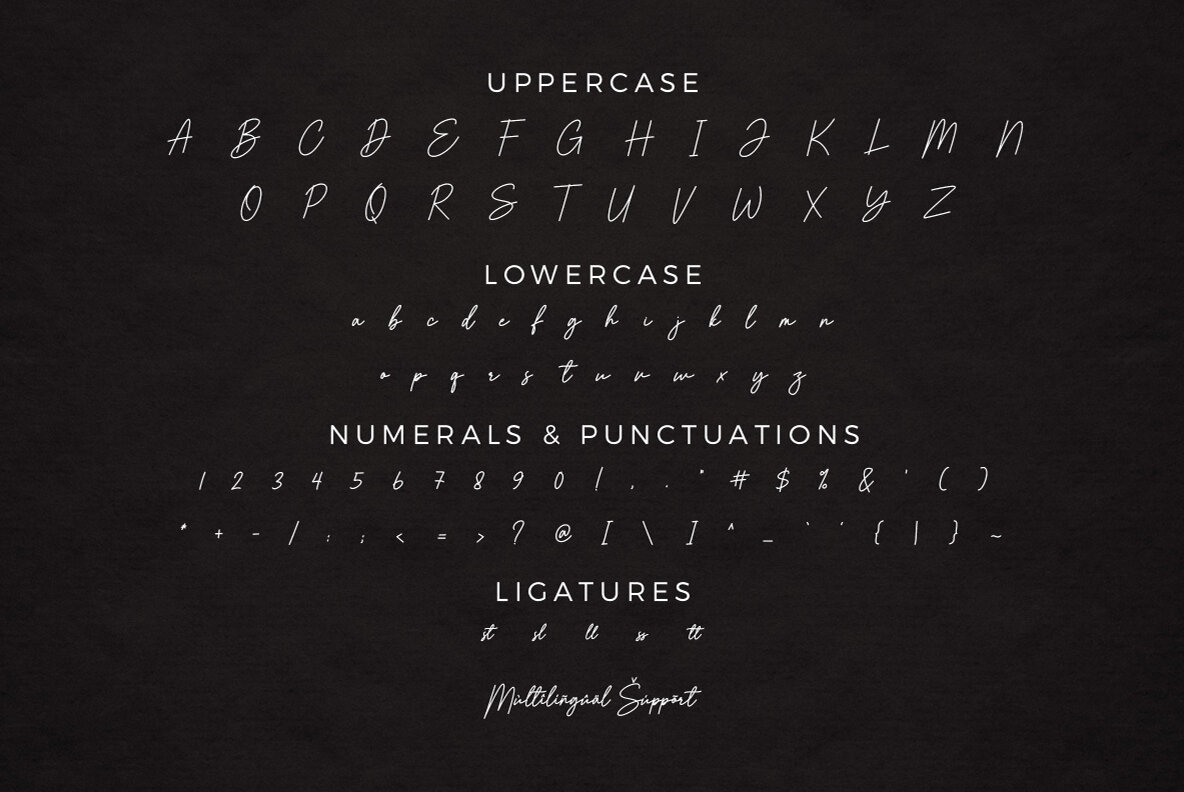 UPPERCASE
A B C D E F G H I J K L M N
O P Q R S T U V W X Y Z
LOWERCASE
a b c d e f g h i j k l m n
o p q r s t u v w x y z
NUMERALS & PUNCTUATIONS
1 2 3 4 5 6 7 8 9 0 ! , . " # $ % & ' ( )
* + - / : ; < = > ? @ [ \ ] ^ _ ` ´ { | } ~
LIGATURES
st sl ll ss tt
Múltiliñgûäl Šúppõrt